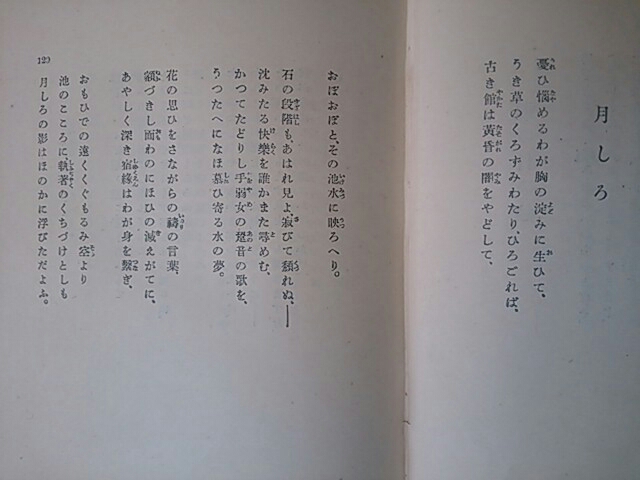 月しろ
憂ひ惱めるわが胸の淀みに生ひて、
うき草のくろずみわたり、ひろごれば、
古き館は黃昏の闇をやどして、
おぼおぼと、その池水に映ろへり。
石の段階もあはれ見よ、寂びて頽れぬ、――
沈みたる快樂を誰かまた尋めむ、
かつてたどりし手弱女の跫音の歌を、
うつたへになほ慕ひ寄る水の夢。
花の思ひをさながらの禱の言葉、
額づきし面わのにほひの滅えがてに、
あやしく深き宿緣はわが身を繫ぎ、
おもひでの遠くくぐもるみ空より
池のこころに執著のくちづけとしも
月しろの影はほのかに浮びただよふ。
129